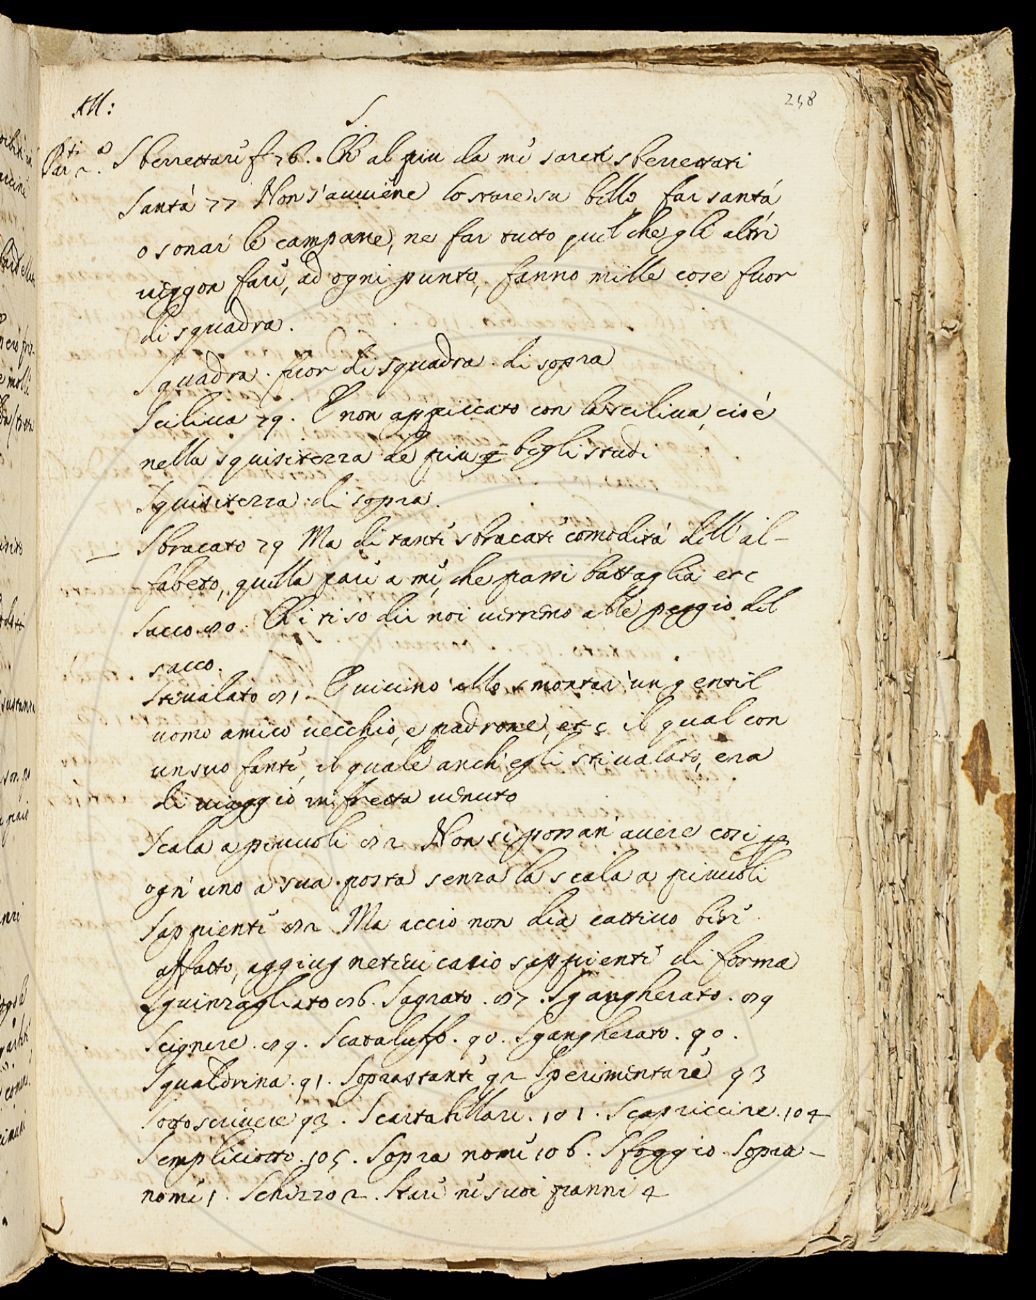 All:
S.
258
Par.ti 2.a Sberrettare f. 76. Chi al piu da mi sareti sberrettati
Santà 77 Non s'auuiene lo stare su bello far santà
o sonar le campane, ne far tutto quel che gli altri
ueggon fare, ad ogni punto, fanno mille cose fuor
di squadra.
Squadra. fuor di squadra. di sopra
Sciliua 79. E non appiccato con la sciliua, cioé
nella squisitezza de piu begli studi
Squisitezza: di sopra.
Sbracato 79 Ma di tanti sbracati comodità dell'al-
fabeto, quella pare a me, che passi battaglia etc
Sacco. 80. Chi ti so dir noi uerremo alle peggio del
sacco.
Stiualato 81. E uicino allo smontar un gentil
uomo amico uecchio, e padrone, etc il qual con
un suo fante, il quale anch'egli stiualato, era
di uiaggio in fretta uenuto
Scala a piuuoli 82 Non si possan' auere cosi
ogn'uno a sua posta senza la scala a piuuoli
Sappienti 82 Ma accio non dia cattiuo bere
affatto, aggiugneteui cacio sappienti di forma
Sguinzagliato 86. Sagrato. 87. Sgangherato. 89
Scignere. 89. Scataluffo. 90. Sgangherato. 90.
Squaldrina. 91. Soprastanti 92 Sperimentare 93
Sottoscriuere 93. Scartabellare. 101. Scapriccire. 104
Sempliciotto. 105. Sopra nomi 106. Sfoggio. Sopra-
nomi 1. Scherzo 2. Stare ne suoi panni 4